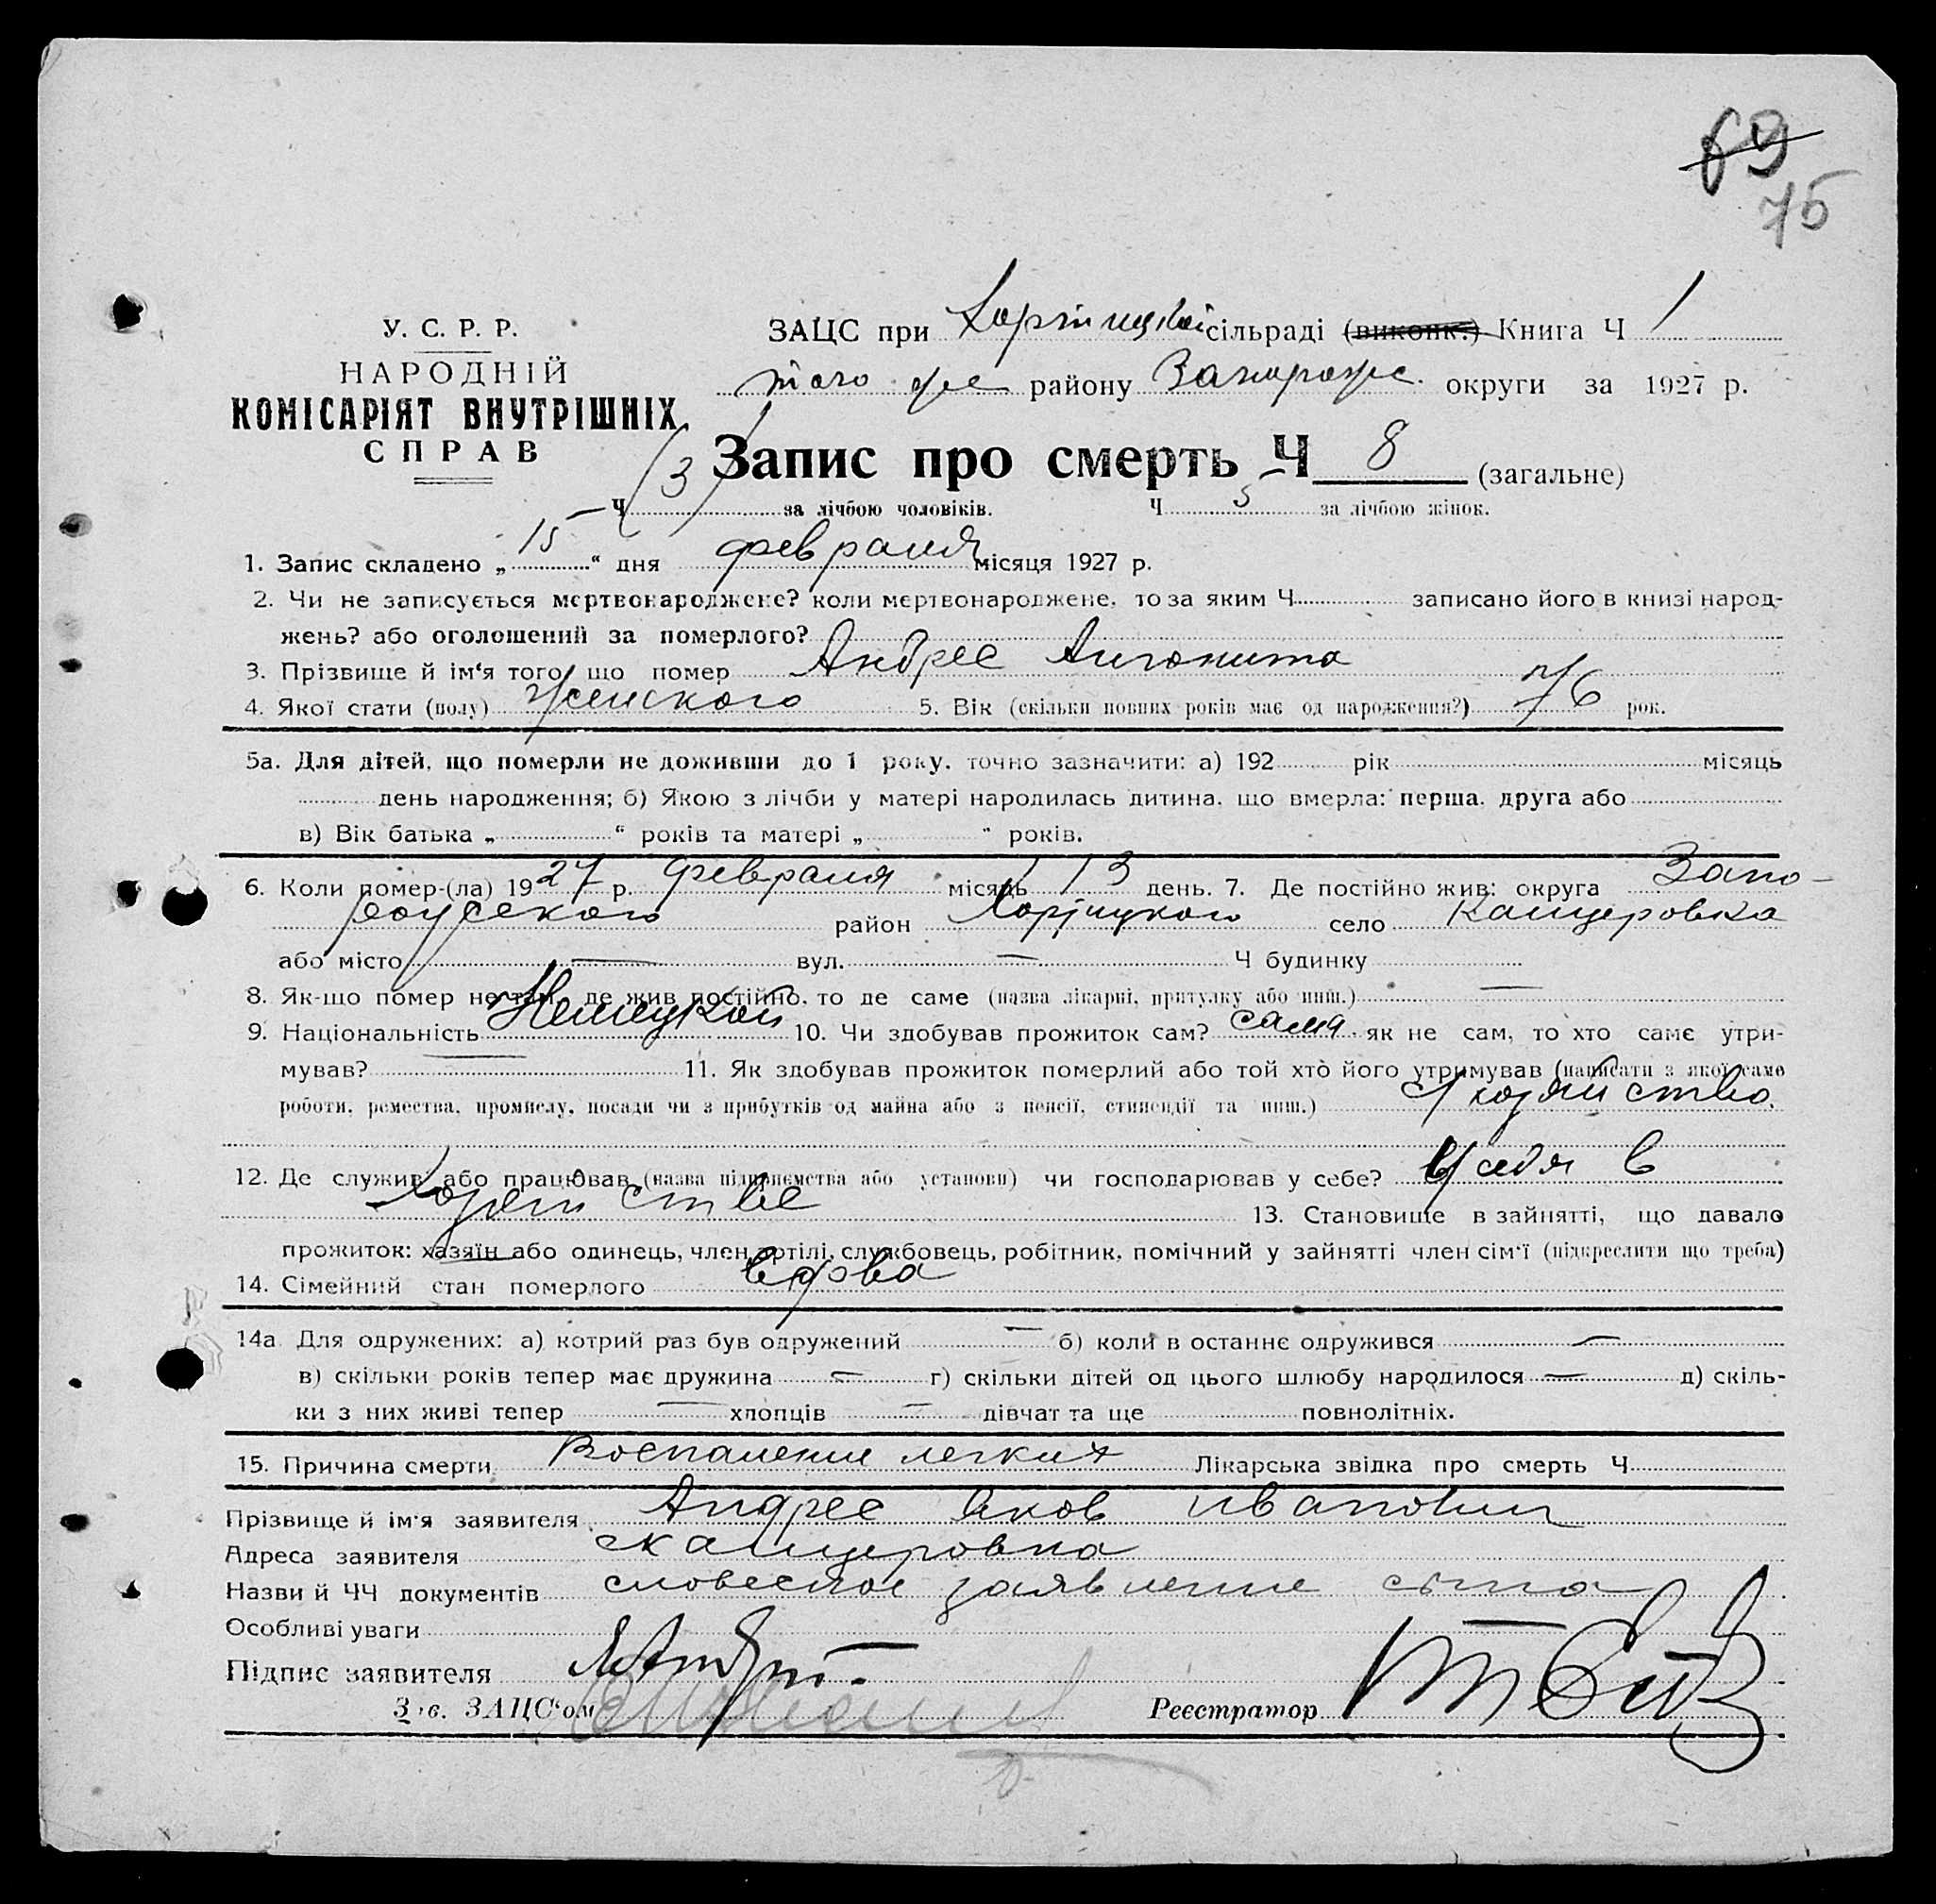 69
75
У. С. Р. Р.
НАРОДНІЙ
КОМІСАРІЯТ ВНУТРІШНІХ
СПРАВ
ЗАЦС при Хортицкой сільраді (виконк.) Книга Ч 1
того же району Запорож. округи за 1927 р.
Запис про смерть Ч 8 (загальне)
Ч (3) за лічбою чоловіків. Ч 5 за лічбою жінок.
1. Запис складено „15“ дня февраля місяця 1927 р.
2. Чи не записується мертвонароджене? коли мертвонароджене, то за яким Ч записано його в книзі народ-
жень? або оголошений за померлого?
3. Прізвище й ім‘я того, що помер Андрес
4. Якої стати (полу) женского 5. Вік (скільки повних років має од народження?) 76 рок.
5а. Для дітей, що померли не доживши до 1 року, точно зазначити: а) 192 рік місяць
день народження; б) Якою з лічби у матері народилась дитина, що вмерла: перша, друга або
в) Вік батька „ “ років та матері „ “ років.
6. Коли помер-(ла) 1927 р. февраля місяць 13 день. 7. Де постійно жив: округа Запо-
рожского район Хортицкого село Канцеровка
або місто — вул. — Ч будинку
8. Як-що помер не там, де жив постійно, то де саме (назва лікарні, притулку або инш.) —
9. Національність Немецкой 10. Чи здобував прожиток сам? сама як не сам, то хто саме утри-
мував? — 11. Як здобував прожиток померлий або той хто його утримував (написати з якої саме
роботи, ремества, промислу, посади чи з прибутків од майна або з пенсії, стипендії та инш.) С/хозяйство.
12. Де служив або працював (назва підприємства або установи) чи господарював у себе? у себя в
хозяйстве 13. Становище в зайнятті, що давало
прожиток: хазяїн або одинець, член артілі, службовець, робітник, помічний у зайнятті член сім‘ї (підкреслити що треба)
14. Сімейний стан померлого вдова
14а. Для одружених: а) котрий раз був одружений — б) коли в останнє одружився —
в) скільки років тепер має дружина — г) скільки дітей од цього шлюбу народилося — д) скіль-
ки з них живі тепер — хлопців — дівчат та ще повнолітніх.
15. Причина смерти Воспаление легких Лікарська звідка про смерть Ч
Прізвище й ім‘я заявителя Андрес Яков Иванович
Адреса заявителя с Канцеровка
Назви й ЧЧ документів словесное заявление сына
Особливі уваги
Підпис заявителя
Зав. ЗАЦС‘ом
Реєстратор